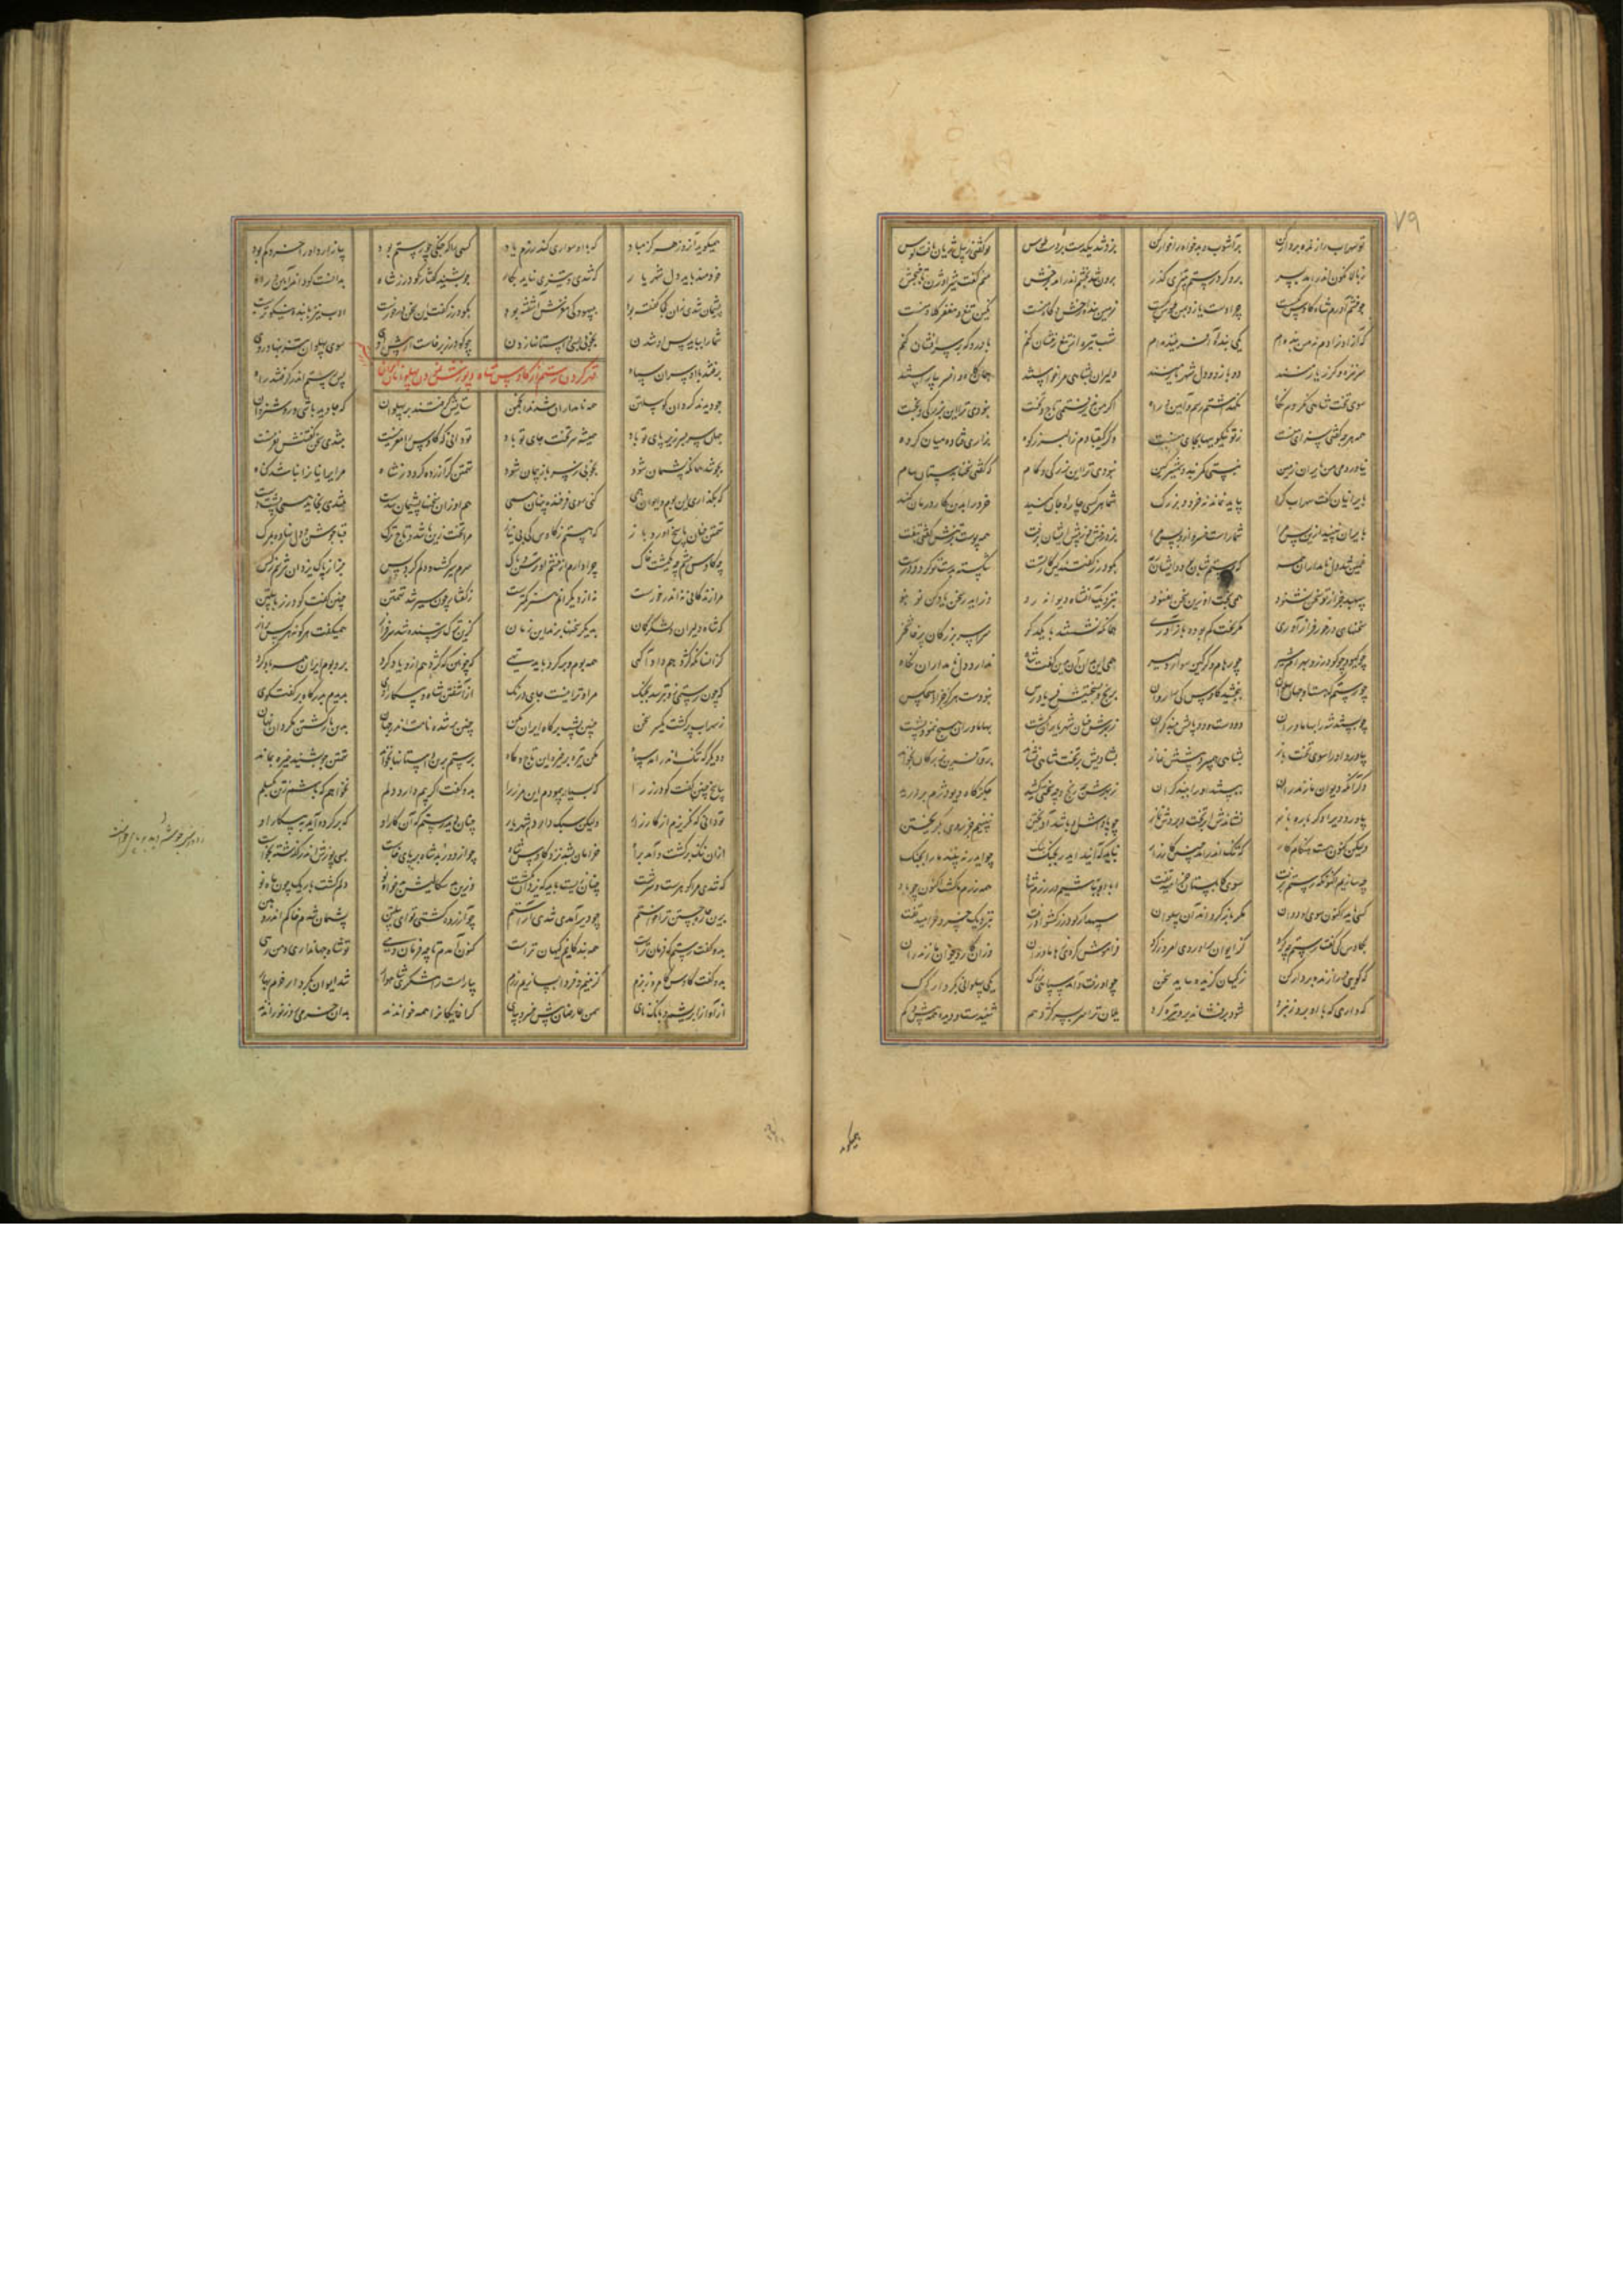 ۷۹
تو سهراب را زنده بر دار کن برآشوب و بدخواه را خوار کن بزد تند یکدست بر دست طوس تو گفتی ز پیل ژیان یافت کوس
ز بالا نگون اندر آمد بسر برو کرد رستم بتندی گذر برون شد بخشم اندر آمد برخش منم گفت شیر اوژن تاج بخش
چو خشم آورم شاه کاوس کیست چرا دست یازد بمن طوس کیست زمین بنده و رخش گاه منست نگین تیغ و مغفر کلاه منست
که آزاد زادم نه من بنده ام یکی بنده آفریننده ام شب تیره از تیغ رخشان کنم باورد گه بر سر افشان کنم
سر نیزه و گرز یار منند دو بازو و دل شهریار منند دلیران بشاهی مرا خواستند همان گاه و افسر بیاراستند
سوی تخت شاهی نکردم نگاه نگه داشتم رسم و آیین و راه اگر من پذیرفتمی تاج و تخت نبودی ترا این بزرگی و بخت
همه هرچه گفتی سزای منست ز تو نیکویها بجای منست وگر کیقبادم ز البرز کوه بزاری فتاده میان گروه
نیاوردمی من بایران زمین نبستی کمربند و شمشیر کین نبودی ترا این بزرگی و کام که گفتی سخنها بدستان سام
بایرانیان گفت سهراب گرد بیاید نماند نه خرد و بزرگ شما هر کسی چاره جان کنید خرد را بدین کار درمان کنید
بایران نبینید ازین پس مرا شما راست بزد رخش و از پیش ایشان برفت همه پوست بر تنش گفتی بکفت
غمین شد دل نامداران همه که رستم شبان بود و ایشان رمه بگودرز گفتند کین کار تست شکسته بدست تو گردد درست
سپهبد جز از تو سخن نشنود همی بخت او زین سخن نغنود بنزدیک این شاه دیوانه رو وزین در سخن یاد کن نو بنو
سخنهای درخور فراز آوری مگر بخت گم بوده باز آوری همانگه نشستند با یکدگر سراسر بزرگان پرخاشخر
چو گیو و چو گودرز و بهرام شیر چو رهام و گرگین سوار دلیر همی این بدان آن بدین گفت شاه ندارد دل نامداران نگاه
چو رستم که هست او جهان پهلوان ببخشید کاوس کی را روان برنج و بسختیش فریادرس نبودست هرگز جز او هیچکس
چو بستند شه را بهاماوران دو دست و دو پایش ببند گران ز بهرش چنان شهریاران بکشت بهاماوران هیچ ننمود پشت
بیاورد او را سوی تخت باز بشاهی همی برد پیشش نماز بشادیش بر تخت شاهی نشاند برو آفرین بزرگان بخواند
وگر آنکه دیوان مازندران ببستند او را ببند گران ز بهرش چه رنج و چه سختی کشید جگرگاه دیو دژم بردرید
نشاندش ابر تخت و بردش نماز چو پاداش او باشد آویختن نبینیم جز روی بگریختن
ولیکن کنونست هنگام کار که تنگ اندر آمد چنین کارزار نباید که آیند ایدر بجنگ
چه سازیم اکنون که رستم برفت سوی زابلستان خرامید تفت همه رزم ما گشت اکنون چو باد
کسی باید اکنون سوی او دوان مگر بازگرداند آن پهلوان سپهدار گودرز بنزدیک خسرو خرامید تفت
بکاوس کی گفت رستم چه کرد کز ایران برآوردی امروز گرد فراموش کردی ز هاماوران وزان کار دیوان مازندران
که گویی ورا زنده بر دار کن ز کیان گزنده نباید سخن چو او رفت و آمد سپاهی بزرگ یکی پهلوانی بکردار گرگ
که داری که با او بروز نبرد شود برفشاند برو تیره گرد یلان ترا سربسر گژدهم شنیدست و دیدست بیش و کم
همیگوید آن روز هرگز مباد که با او سواری کند رزم یاد کسی را که جنگی چو رستم بود بیازارد او را خرد کم بود
خردمند باید دل شهریار که تندی و تیزی نیاید بکار چو بشنید گفتار گودرز شاه بدانست کو دارد آیین و راه
پشیمان شد زان کجا گفته بود ببیهودگی مغزش آشفته بود بگودرز گفت این سخن درخورست لب پیر با پند نیکوترست
شما را بباید پس او شدن بخوبی بسی داستانها زدن چو گودرز برخاست از پیش اوی سوی پهلوان تیز بنهاد روی
برفتند با او سران سپاه پس رستم اندر گرفتند راه
قهر کردن رستم از کاوس شاه و پوزش نمودن پهلوانان ایران
چو دیدند گردان گو پیلتن همه نامداران شدند انجمن ستایش گرفتند بر پهلوان که جاوید باشی و روشن روان
جهان سربسر زیر پای تو باد همیشه سر تخت جای تو باد تو دانی که کاوس را مغز نیست بتندی سخن گفتنش نغز نیست
بجوشد همانگه پشیمان شود بخوبی ز سر باز پیمان شود تهمتن گر آزرده گردد ز شاه مر ایرانیان را نباشد گناه
که بگذارد این بوم و ایران همی کند روی فرخنده پنهان همی هم او زان سخنها پشیمان شدست بتندی بخاید همی پشت دست
تهمتن چنین پاسخ آورد باز که هستم ز کاوس کی بی نیاز مرا تخت زین باشد و تاج ترگ قبا جوشن و دل نهاده بمرگ
چه کاوس پیشم چه یکمشت خاک چرا دارم از خشم او ترس و باک سرم سیر گشت و دلم کرد بس جز از پاک یزدان نترسم ز کس
ز گفتار چون سیر شد تهمتن چنین گفت گودرز با پیلتن
که شاه و دلیران و لشکرکشان بدیگر سخنها برند این زمان کزین ترک ترسنده شد سرفراز همیگفت هر گونه هر کس براز
کز آنسان که گژدهم داد آگهی همه بوم و بر کرد باید تهی چو رستم همی زو بترسد بجنگ مرا و ترا نیست جای درنگ
از آشفتن شاه و پیکار اوی بدیدم بدرگاه بر گفت و گوی
ز سهراب یل رفت یکسر سخن چنین پشت بر شاه ایران مکن چنین برشده نامت اندر جهان بدین بازگشتن مگردان نهان
و دیگر که تنگ اندر آمد سپاه مکن تیره بر خیره این تاج و گاه برستم برین داستانها بخواند تهمتن چو بشنید خیره بماند
بدو گفت اگر بیم دارد دلم نخواهم که باشد ز تن بگسلم
تو دانی که نگریزم از کارزار ولیکن سبک داردم شهریار چنان دید رستم از آن کار او که برگردد آید به پیکار او
از آن ننگ برگشت و آمد براه خرامان بشد نزد کاوس شاه چو از دور شد شاه بر پای خاست بسی پوزش اندر گذشته بخواست
که تندی مرا گوهرست و سرشت چنان زیست باید که یزدان بکشت وزین بدسگالش دلم گشت باریک چون ماه نو
بدین چاره جستن ترا خواستم چو دیر آمدی تندی آراستم چو آزرده گشتی تو ای پیلتن پشیمان شدم خاکم اندر دهن
بدو گفت رستم که فرمان تراست همه بندگانیم و گیهان تراست کنون آمدم تا چه فرمان دهی تو شاه جهانداری و من رهی
بدو گفت کاوس کامروز بزم گزینیم و فردا بسازیم رزم بیاراست رامشگهی شاهوار شد ایوان بکردار خرم بهار
از آواز ابریشم و بانگ نای سمن عارضان پیش خسرو بپای